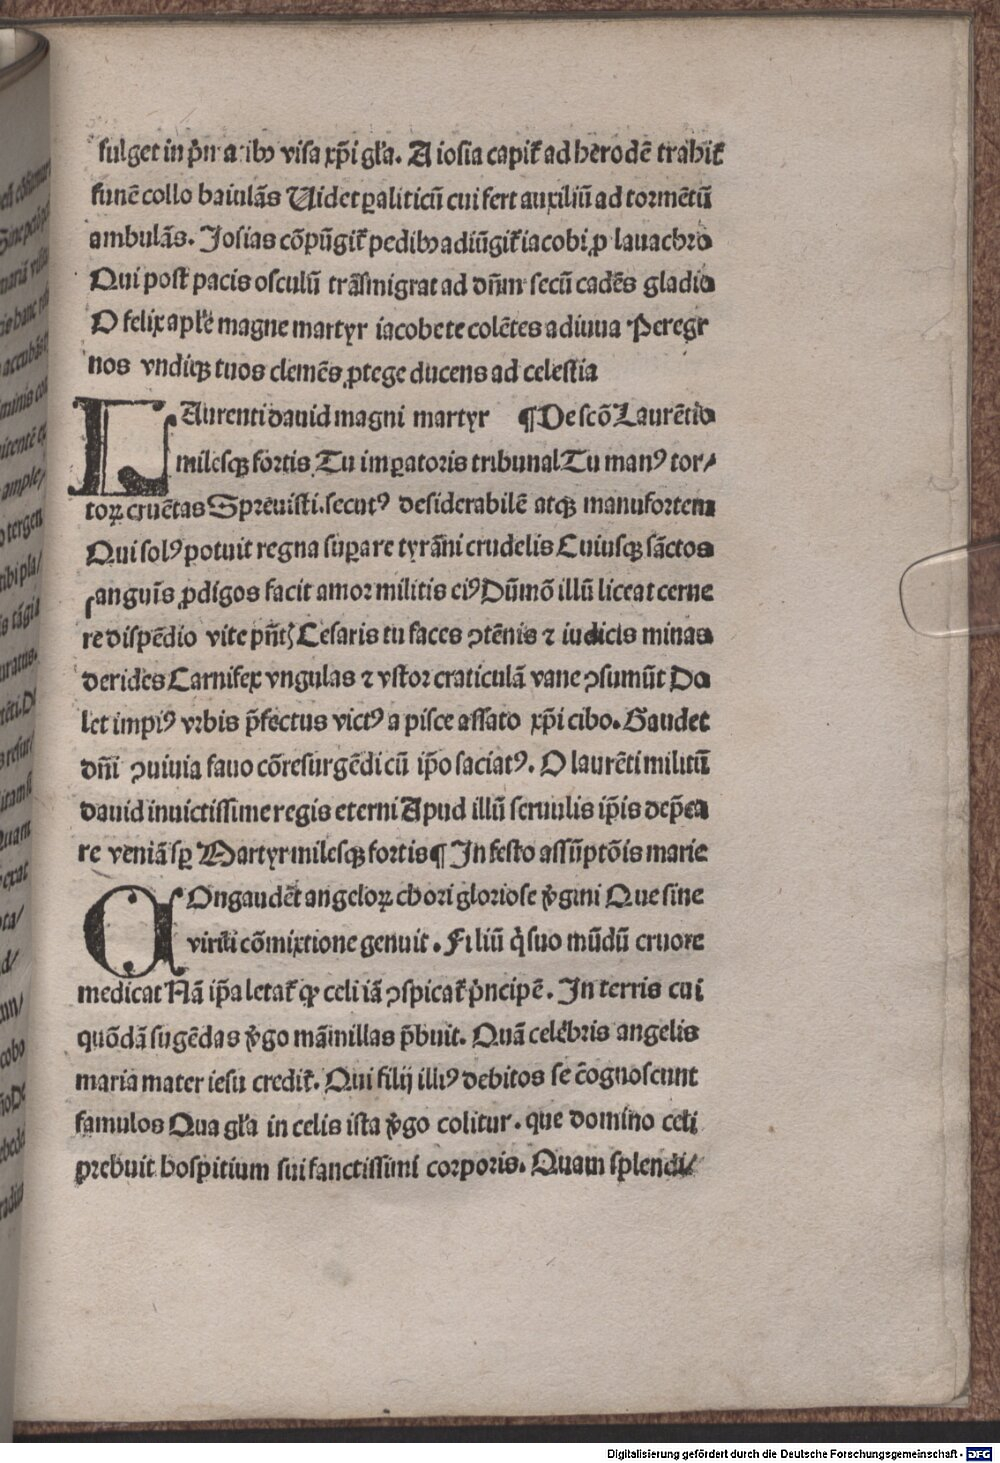 fulget in p̃n a ribꝫ visa xp̃i gl̃a. A iosia capit̃ ad herodē trahit̃
funē collo baiulãs Uidet ꝑaliticũ cui fert auxiliũ ad tormētũ
ambulãs. Josias cõpũgit̃ pedibꝫ adiũgit̃ iacobi ꝓ lauachro
Qui post pacis osculũ trãsmigrat ad dñm secũ cadēs gladio
O felix apl̃e magne martyr iacobe te colētes adiuua Peregr
nos vndiqꝫ tuos clemēs ꝓtege ducens ad celestia
LAurenti dauid magni martyr ¶De scõ Laurētio
milesqꝫ fortis Tu imꝑatoris tribunal Tu manꝰ tor/
toꝝ cruētas Spreuisti.secutꝰ desiderabilē atqꝫ manufortem
Qui solꝰ potuit regna suꝑare tyrãni crudelis Cuiusqꝫ sãctos
anguĩs ꝓdigos facit amor militis eiꝰ Dũmõ illũ liceat cerne
re dispēdio vite pñtꝭ Cesaris tu faces ꝯtēnis ⁊ iudicis minas
derides Carnifex vngulas ⁊ vstor craticulã vane ꝯsumũt Do
let impiꝰ vrbis p̃fectus victꝰ a pisce assato xp̃i cibo. Gaudet
dñi ꝯuiuia fauo cõresurgēdi cũ ip̃o saciatꝰ. O laurēti militũ
dauid inuictissime regis eterni Apud illũ seruulis ip̃is dep̃ca
re veniã sꝑ Martyr milesqꝫ fortis¶ In festo assũptõis marie
COngaudēt angeloꝝ chori gloriose v̾gini Que sine
virili cõmixtione genuit . Filiũ q̃ suo mũdũ cruore
medicat Nã ip̃a letat̃ ꝙ celi iã ꝯspicat̃ p̃ncipē . In terris cui
quõdã sugēdas v̾go mãmillas p̃buit. Quã celebris angelis
maria mater iesu credit̃. Qui filij illiꝰ debitos se cognoscunt
famulos Qua gl̃a in celis ista v̾go colitur . que domino celi
prebuit hospitium sui sanctissimi corporis. Quam splendi/
Digitalisierung gefördert durch die Deutsche Forschungsgemeinschaft - DFG